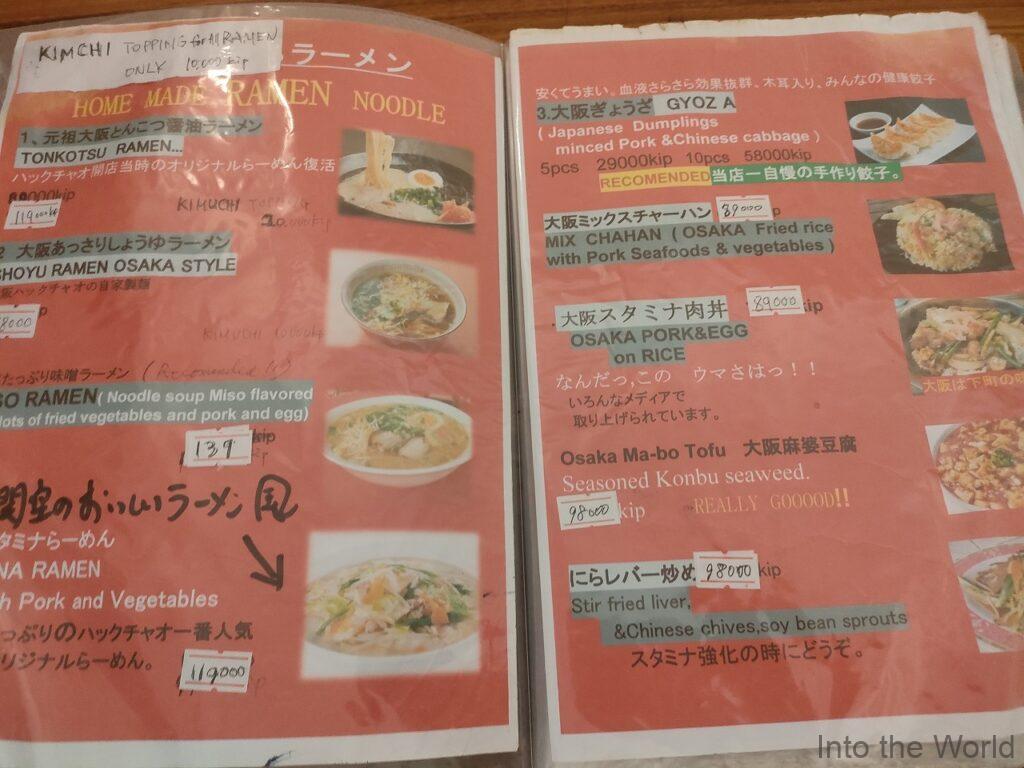 KIMCHI TOPPING for All RAMEN
ONLY 10,000kip
ラーメン
HOME MADE RAMEN NOODLE
1、元祖大阪とんこつ醤油ラーメン
TONKOTSU RAMEN...
ハックチャオ開店当時のオリジナルらーめん復活
kip
119000
KIMUCHI TOPPING
10.000kip
2 大阪あっさりしょうゆラーメン
SHOYU RAMEN OSAKA STYLE
阪ハックチャオの自家製麺
8000
KIMUCHI 10000kip
たっぷり味噌ラーメン (Recommended
SO RAMEN( Noodle soup Miso flavored
lots of fried vegetables and pork and egg)
139
kip
関空のおいしいラーメン 風
タミナらーめん
NA RAMEN
h Pork and Vegetables
っぷりのハックチャオ一番人気
リジナルらーめん。
119000
kip
安くてうまい。血液さらさら効果抜群、木耳入り、みんなの健康餃子
3.大阪ぎょうざ GYOZ A
( Japanese Dumplings
minced Pork &Chinese cabbage )
5pcs 29000kip 10pcs 58000kip
RECOMENDED 当店一自慢の手作り餃子。
大阪ミックスチャーハン 89000 p
MIX CHAHAN ( OSAKA Fried rice
with Pork Seafoods & vegetables )
大阪スタミナ肉丼 89000 kip
OSAKA PORK&EGG
on RICE
大阪は下町の味
なんだっ,この ウマさはっ！！
いろんなメディアで
取り上げられています。
Osaka Ma-bo Tofu 大阪麻婆豆腐
Seasoned Konbu seaweed.
98000 kip REALLY GOOOOD!!
にらレバー炒め 98000 kip
Stir fried liver,
&Chinese chives,soy bean sprouts
スタミナ強化の時にどうぞ。
Into the World